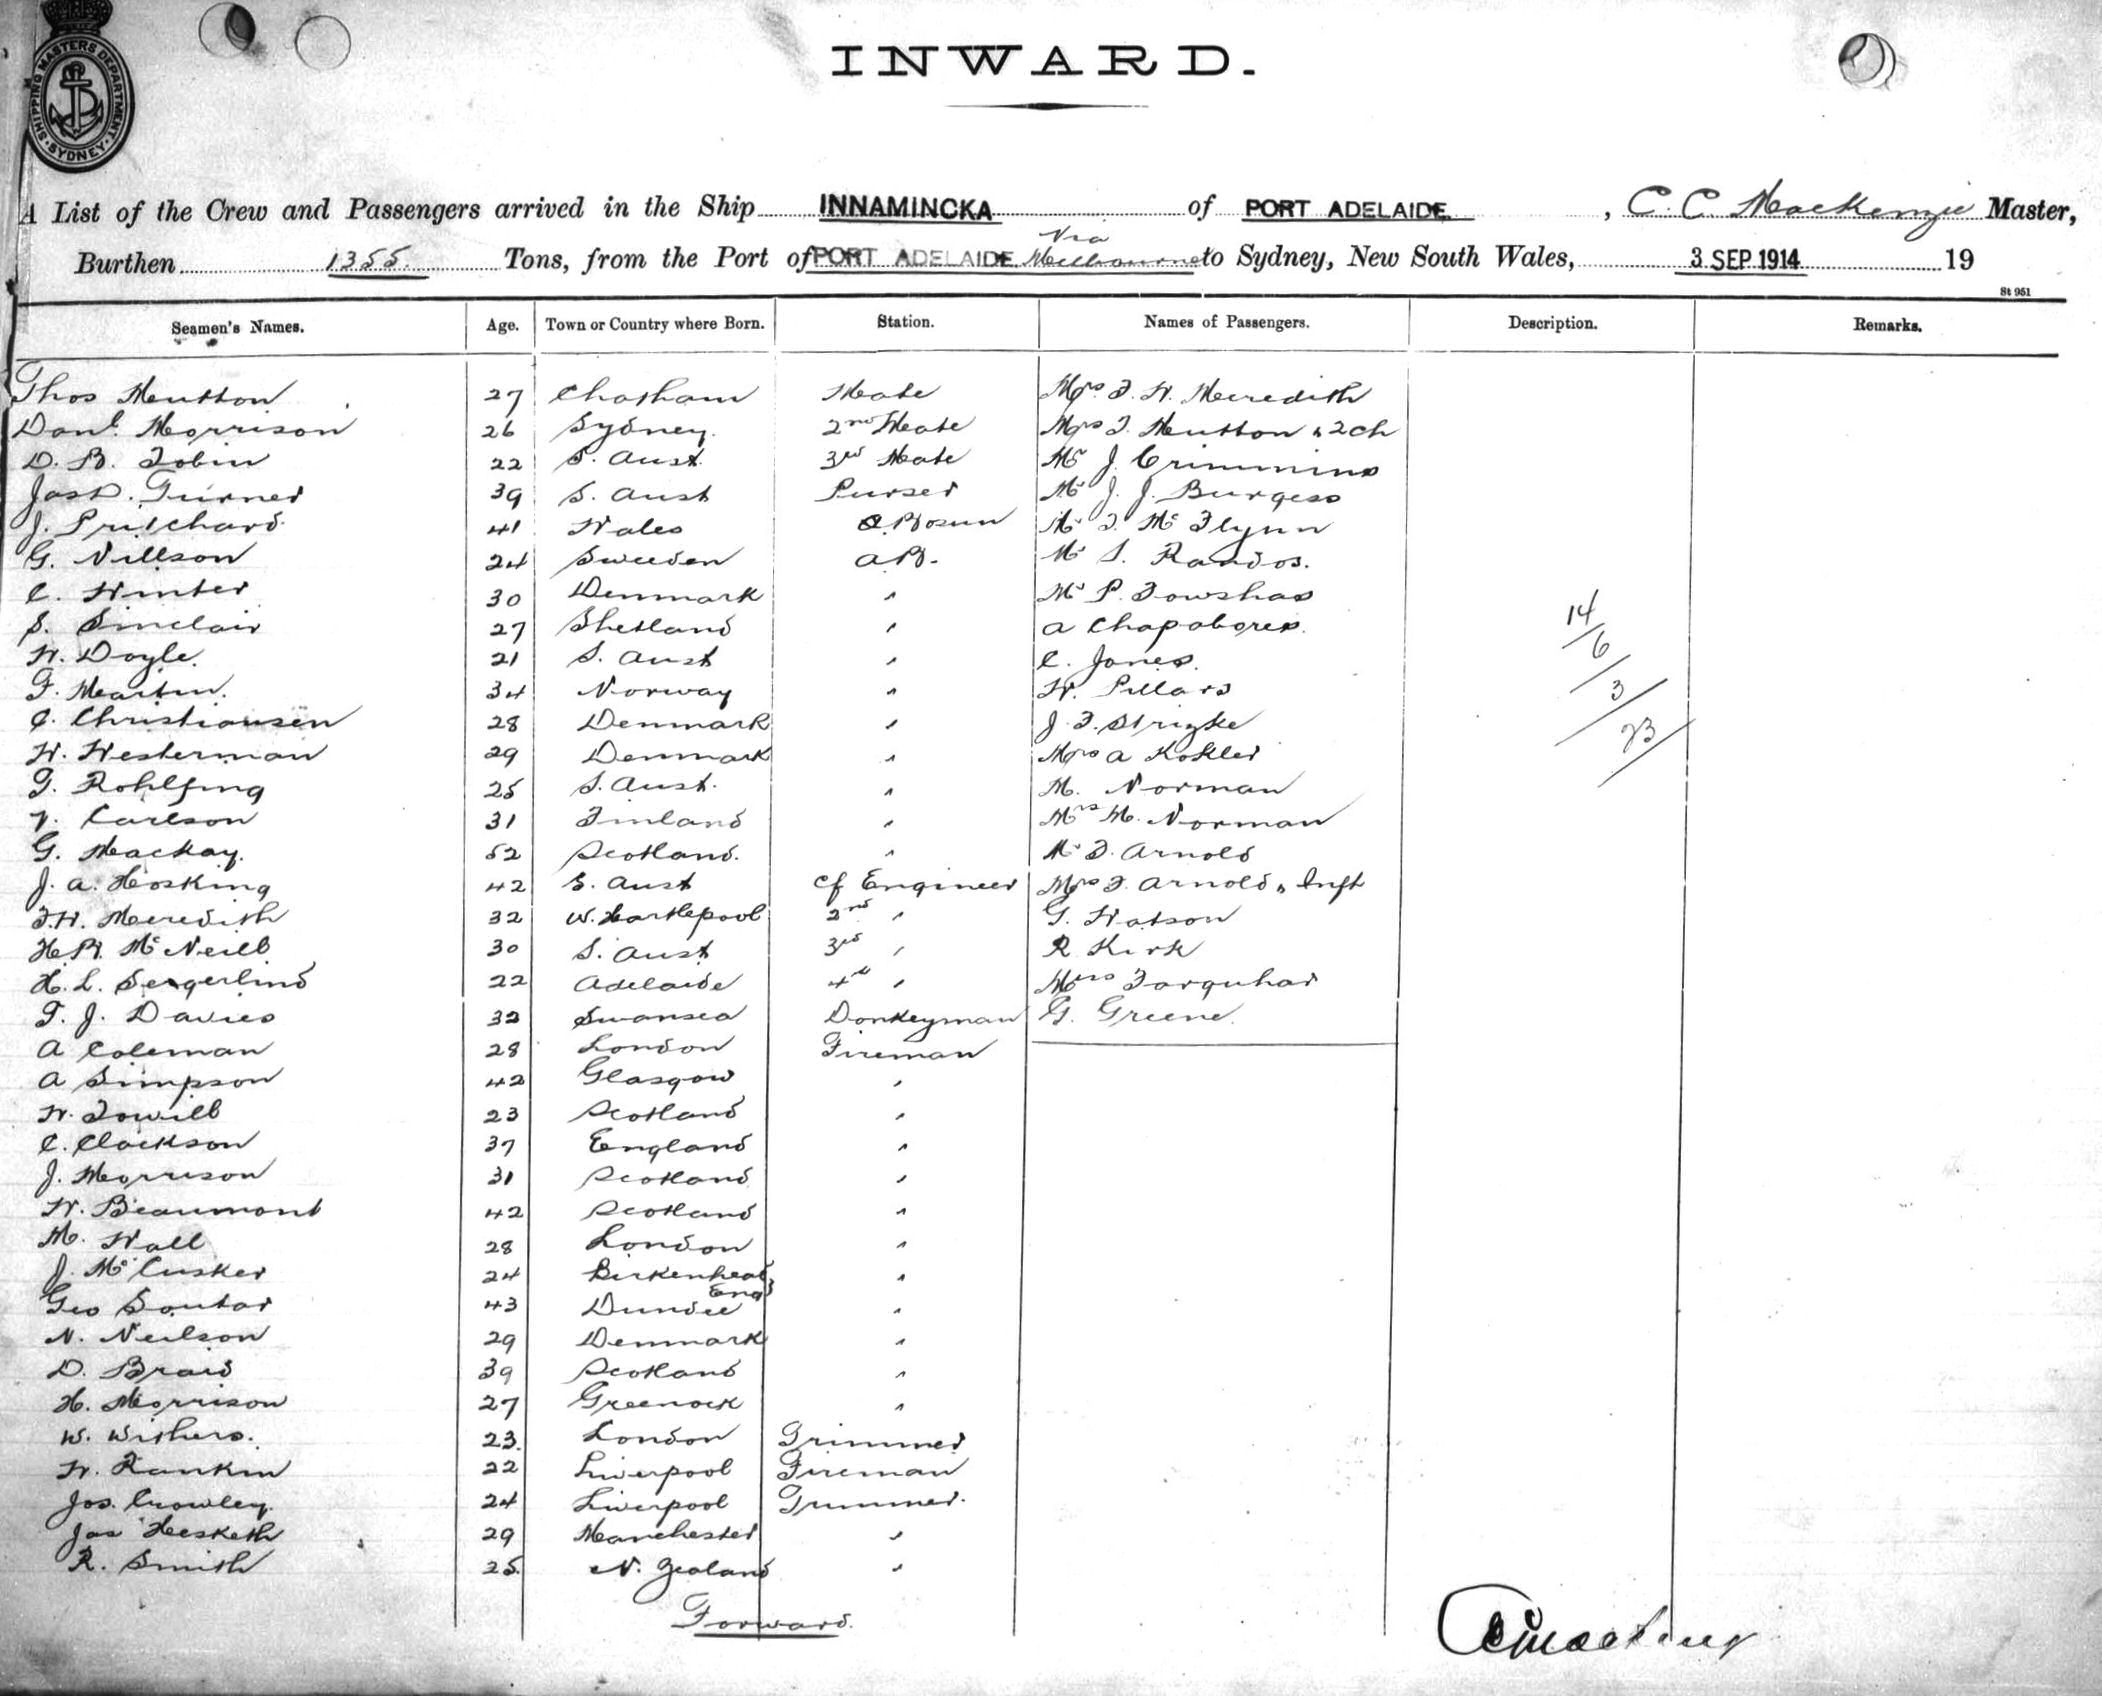 SHIPPING MASTERS DEPARTMENT. SYDNEY
INWARD.
A List of the Crew and Passengers arrived in the Ship INNAMINCKA of PORT ADELAIDE, C. C. Mackenzie Master,
Via
Burthen 1355 Tons, from the Port of PORT ADELAIDE Melbourne to Sydney, New South Wales, 3 SEP 1914 19
St 951
Seamen's Names. Age. Town or Country where Born. Station. Names of Passengers. Description. Remarks.
Thos Mutton 27 Chatham Mate Mrs. F. W. Meredith
Danl. Morrison 26 Sydney. 2nd Mate Mrs F. Mutton & 2 ch
D. B. Tobin 22 S. Aust. 3rd Mate Mr J. Crimmins
Jas D. Turner 39 S. Aust Purser Mr J. J. Burgess
J. Pritchard. 41 Wales Bosun Mr F. Mc Flynn
G. Nillson 24 Sweeden A.B. Mr S. Randos.
C. Winter 30 Denmark " Mr P. Fowshas
S. Sinclair 27 Shetland " A
W. Doyle. 21 S. Aust " C. Jones.
F. Martin. 34 Norway " W. Pillars
C. Christiansen 28 Denmark " J. F.
W. Westerman 29 Denmark " Mrs A Kohler
T. Rohlfing 25 S. Aust. " M. Norman
V. Carlson 31 Finland " Mrs M. Norman
G. Mackay. 52 Scotland. " Mr F. Arnold
J. A. Hosking 42 S. Aust Cf Engineer Mrs F. Arnold & Inft
F. W. Meredith 32 W. Hartlepool 2nd " G. Watson
H. B. Mc Neill 30 S. Aust 3rd " R Kirk
H. L. Segerlind 22 Adelaide 4th " Miss Farquhar
T. J. Davies 32 Swansea Donkeyman G. Greene.
A Coleman 28 London Fireman
A Simpson 42 Glasgow "
W. Towill 23 Scotland "
C. Clackson 37 England "
J. Morrison 31 Scotland "
W. Beaumont 42 Scotland "
M. Wall 28 London "
J. McCusker 24 Birkenhead Eng "
Geo Soutar 43 Dundee "
N. Neilson 29 Denmark "
D. Braid 39 Scotland "
H. Morrison 27 Greenock "
W. Withers. 23. London Trimmer
W. Rankin 22 Liverpool Fireman
Jos. Crowley. 24 Liverpool Trimmer.
Jas Hesketh 29 Manchester "
R. Smith 25. N. Zealand "
14/
6/
3/
23/
Forward.